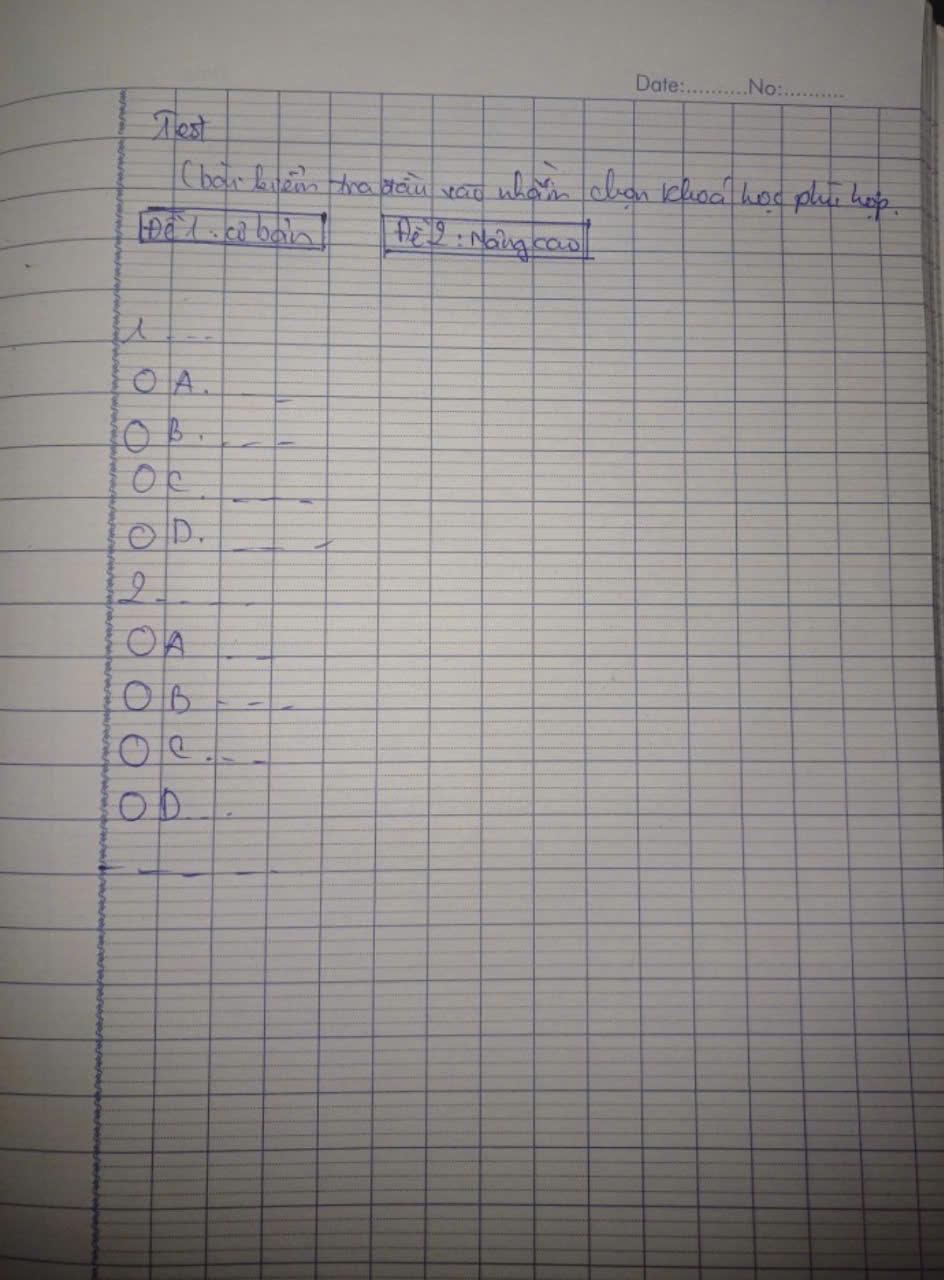 Date:..........No:..........
Test
(bài kiểm tra đầu vào nhằm chọn khoá học phù hợp.
Đề 1: cơ bản Đề 2: Nâng cao
1 ---
O A. ---
O B. ---
O C. ---
O D. ---
2 ----
O A --
O B ---
O C ---
O D ---